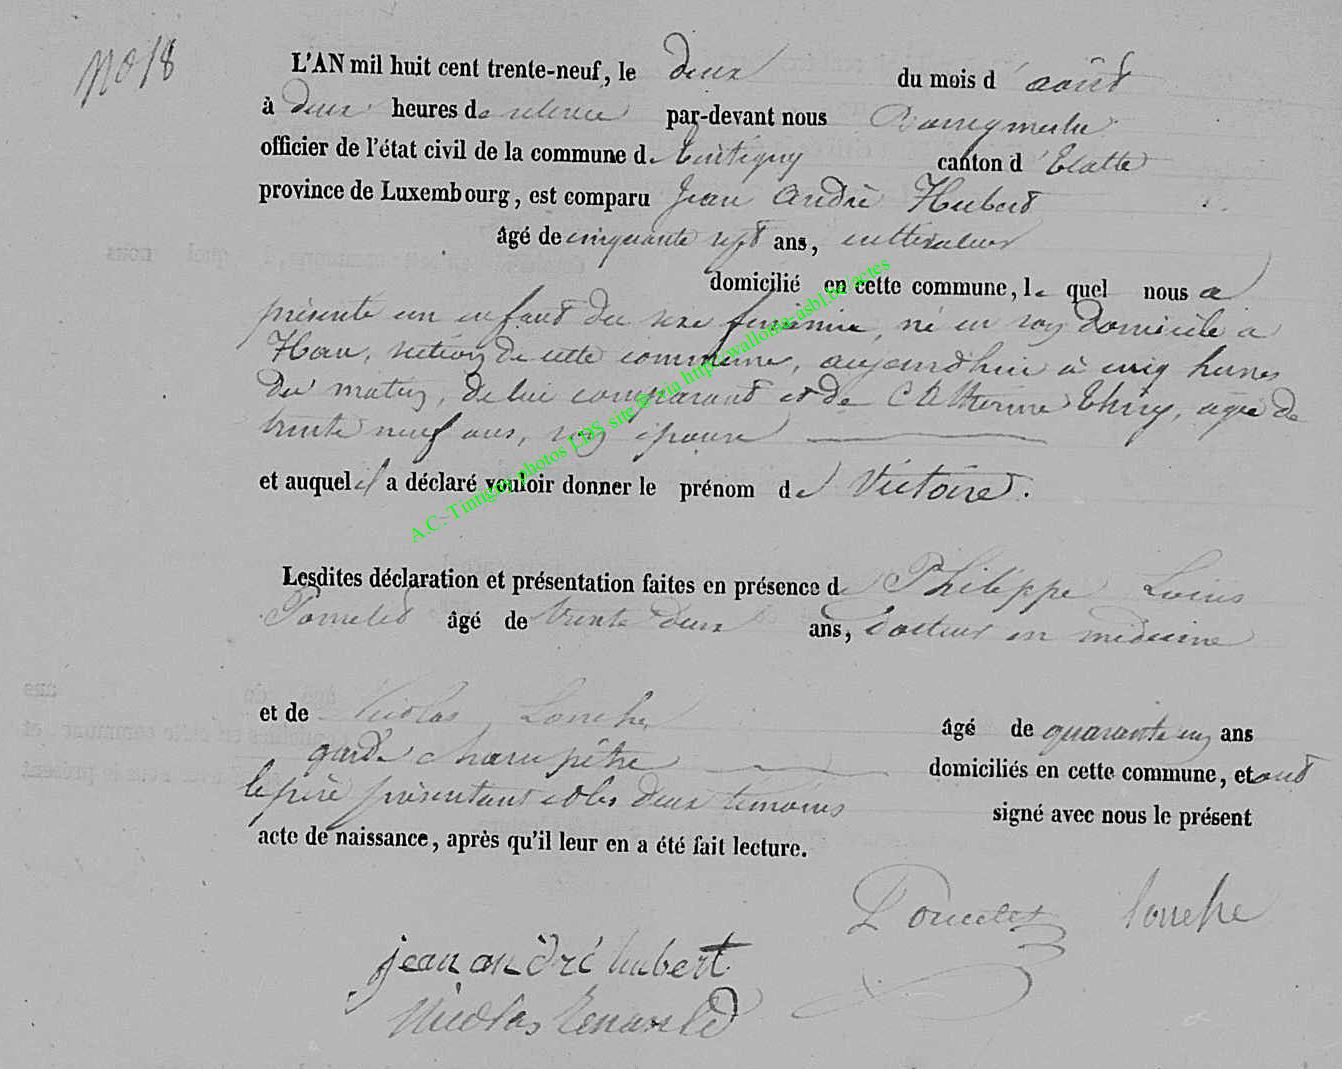 No 18
L'AN mil huit cent trente-neuf, le deux du mois d'août
à deux heures de relevée par-devant nous Bourgmestre
officier de l'état civil de la commune de Tintigny canton d'Etalle
province de Luxembourg, est comparu Jean André Hubert
âgé de cinquante sept ans, cultivateur
domicilié en cette commune, le quel nous a
présenté un enfant du sexe féminin, né en son domicile à
Han, section de cette commune, aujourd'hui à cinq heures
du matin, de lui comparant et de Catherine Thiry, agée de
trente neuf ans, son épouse
et auquel il a déclaré vouloir donner le prénom de Victoire.
Lesdites déclaration et présentation faites en présence de Philippe Louis
Poncelet âgé de trente deux ans, docteur en médecine
et de Nicolas Louche âgé de quarante un ans
garde champêtre domiciliés en cette commune, et ont
le père présentant et les deux témoins signé avec nous le présent
acte de naissance, après qu'il leur en a été fait lecture.
Poncelet Louche
jean andré hubert
Nicolas Renauld
A.C. Tintigny photos LDS site @ via http://wallonia-asbl.be/actes